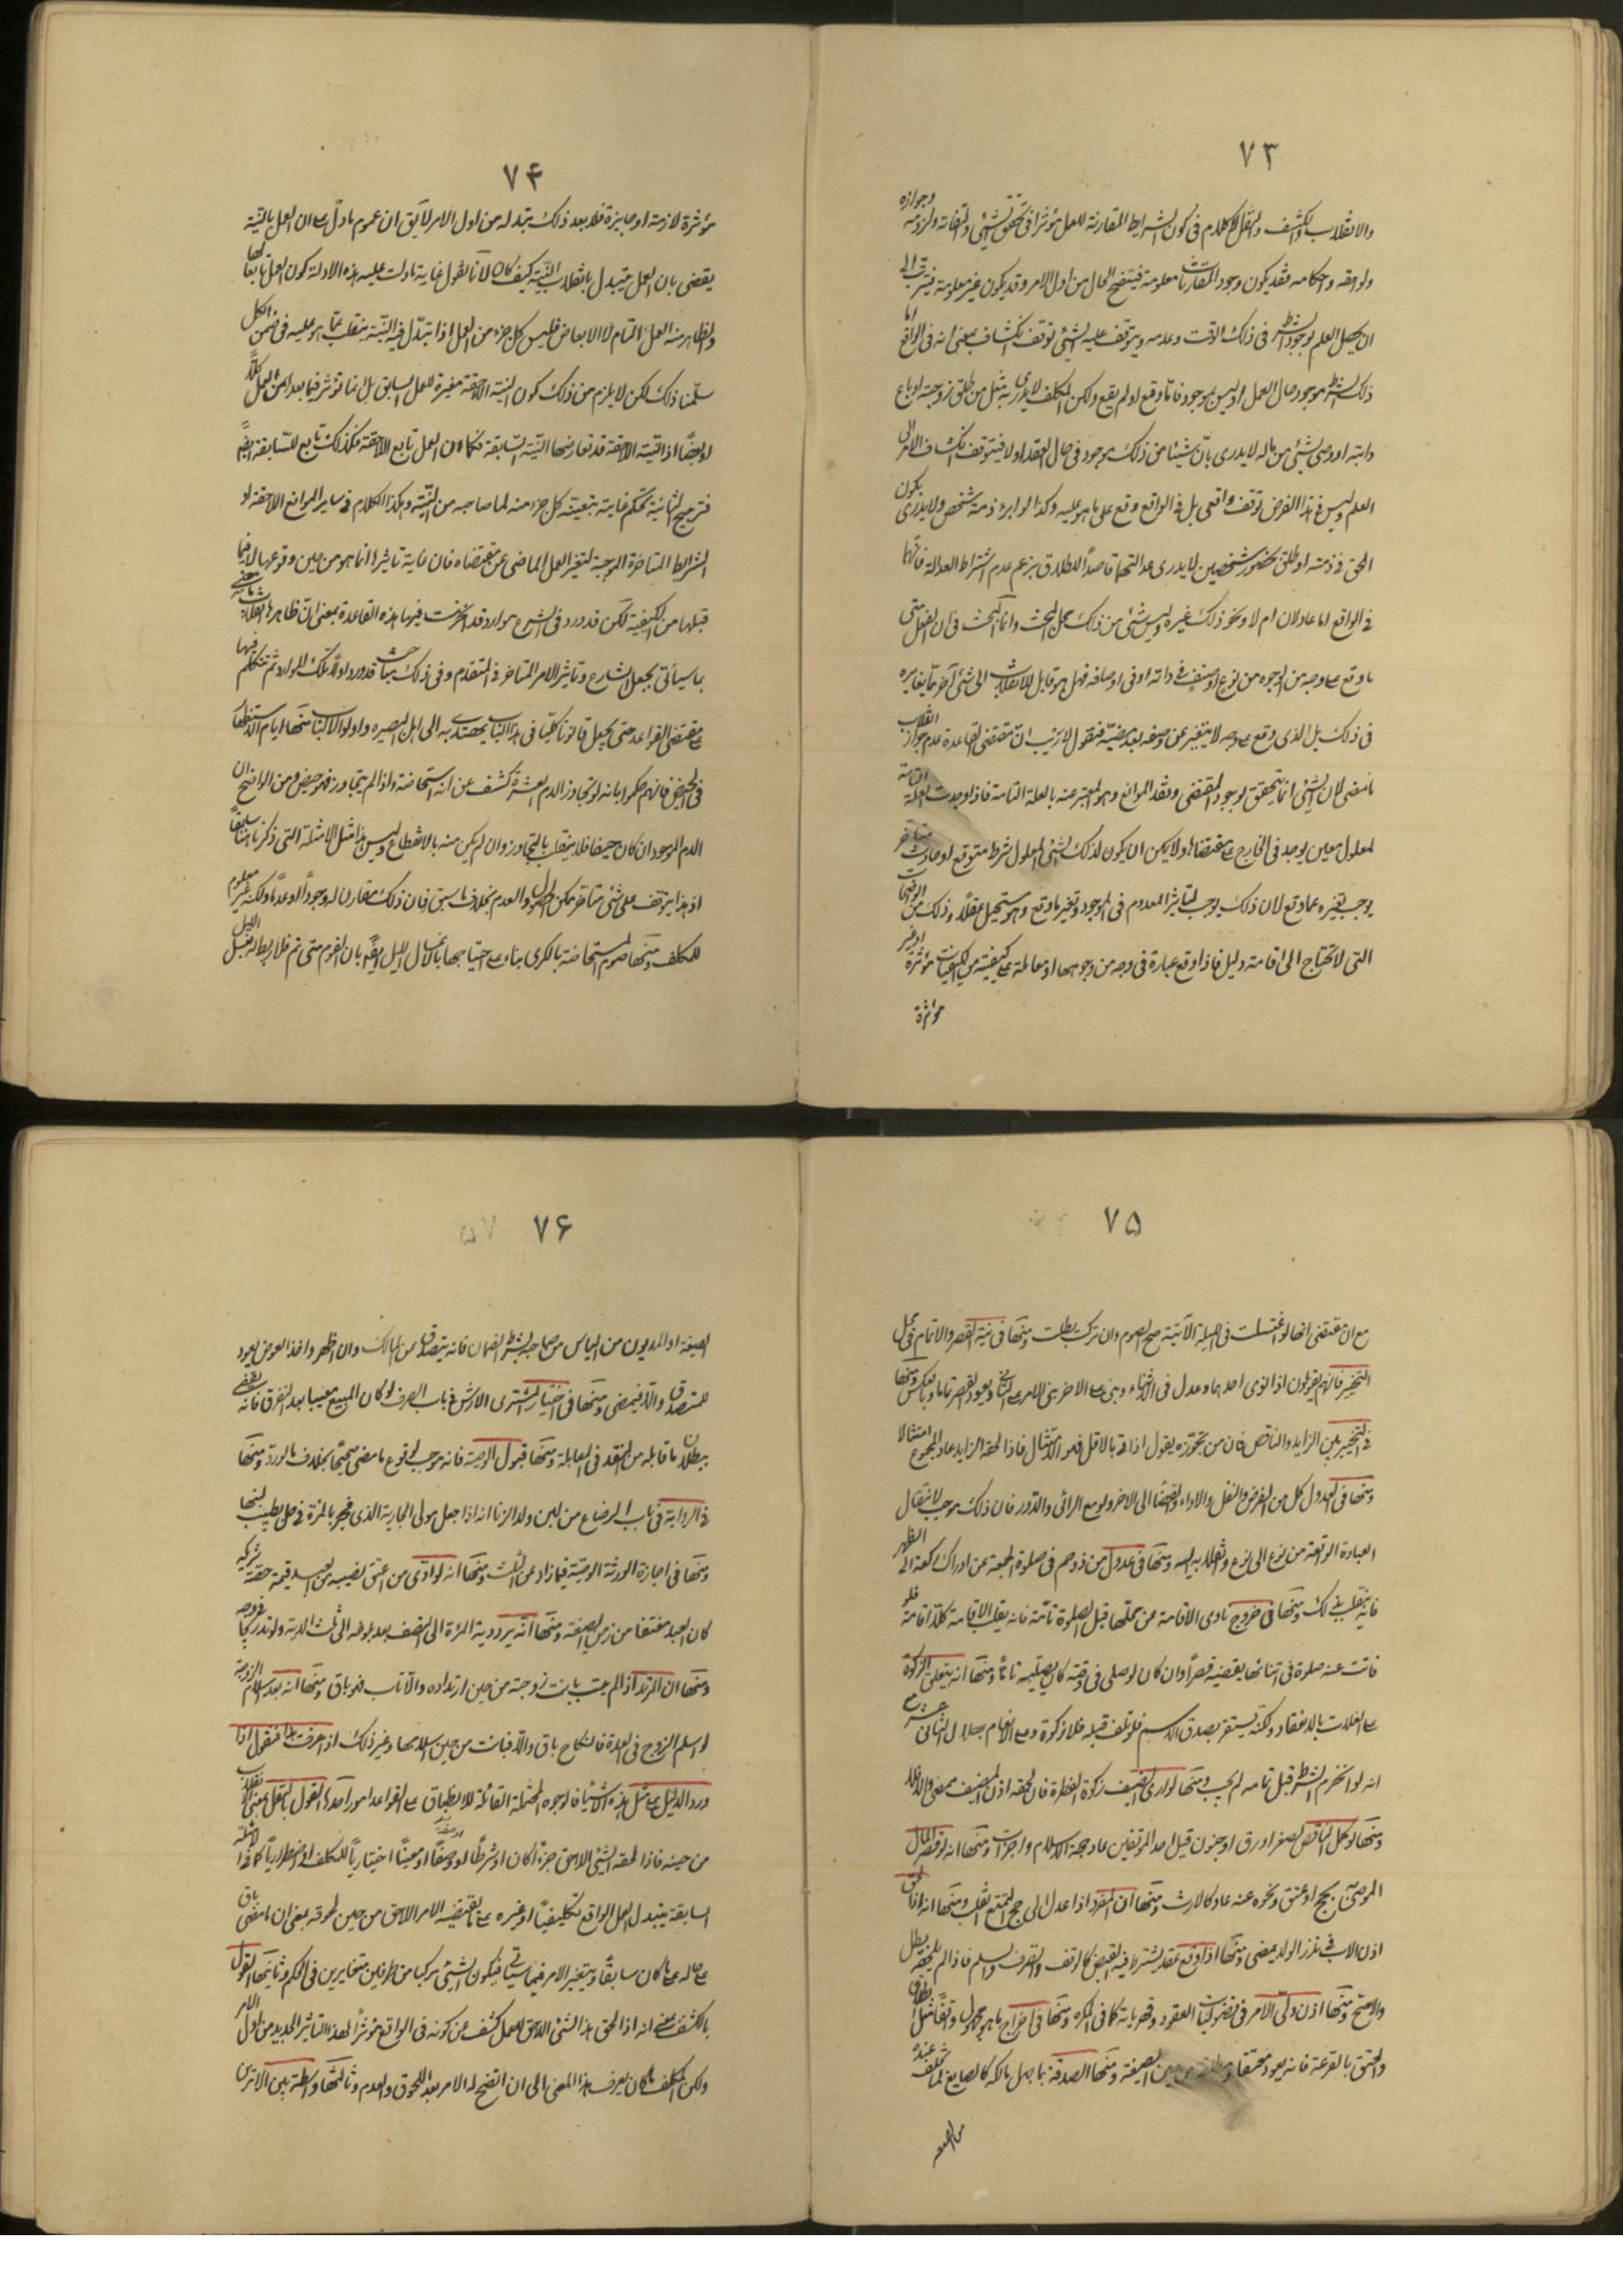 ٧٣
والانقلاب والكشف والنقل لا كلام فى كون الشرايط المقارنة للعمل مؤثرا فى تحقق الشيئ وانتفائه ولزومه وجوازه
ولواحقه واحكامه فقد يكون وجود المقارنات معلومة فيتضح الحال من اول الامر وقد يكون غير معلومة فيترقب الى
ان يحصل العلم بوجود الشرط فى ذلك الوقت وعدمه ويتوقف عليه الشيئ توقف انكشاف بمعنى انه فى الواقع اما
ذلك الشرط موجود حال العمل او ليس بموجود فاما وقع او لم يقع ولكن المكلف لا يدرى به مثل من طلق زوجته او باع
دابته او وصى بشيئ من ماله لا يدرى بان شيئا من ذلك موجود فى حال العقد او لا فيتوقف انكشاف الامر الى
العلم وليس فى هذا الفرض توقف واقعى بل فى الواقع وقع على ما هو عليه وكذا لو ابرء ذمة شخص ولا يدرى يكون
الحق فى ذمته او طلق بحضور شخصين لا يدرى عدالتهما قاصداً للطلاق بزعم عدم اشتراط العدالة فانهما
فى الواقع اما عادلان ام لا ونحو ذلك غيره وليس شيئ من ذلك محل البحث وانما البحث فى ان الفعل متى
ما وقع على وجه من الوجوه من نوع او صنف فى ذاته او فى اوصافه فهل هو قابل للانقلاب الى شئ آخر مما يغايره
فى ذلك بل الذى وقع على وجه لا يتغير عن وصفه بعد مضيّه فنقول لا ريب انّ مقتضى القاعدة عدم جواز انقلاب
ما مضى لان الشيئ انما يتحقق لوجود المقتضى وفقد الموانع وهو المعبر عنه بالعلة التامة فاذا وجدت العلة التامة
لمعلول معين يوجد فى الخارج على مقتضاها ولا يمكن ان يكون لذلك الشئ المعلول شرط متوقع او حادث متأخر
يوجب تغيره عما وقع لان ذلك يوجب لتاثير المعدوم فى الموجود وتغير ما وقع وهو مستحيل عقلاً وذلك من الواضحات
التى لا تحتاج الى اقامة دليل فاذا وقع عبارة فى وجه من وجوهها او معاملة على كيفيته من الكيفيات مؤثرة او غير
مؤثرة
٧۴
مؤثرة لازمة او جايزة فلا بعد ذلك بتبدله من اول الامر لا يق ان عموم ما دلّ على ان العمل بالنيّة
يقضى بان العمل يتبدل بانقلاب النيّة كيف كان لانّا نقول غاية ما دلت عليه هذه الادلة كون العمل تابعا لها
والظاهر منه العمل التام لا الابعاض فليس كل جزء من العمل اذا تبدّل فيه النيّة ينقلب عمّا هو عليه فى ضمن الكل
سلّمنا ذلك لكن لا يلزم من ذلك كون النية اللاحقة مغيرة للعمل السابق بل انما تؤثر فيما بعد امن العمل كلّاً
او بعضًا اذ النيّة اللاحقة قد تعارضها النيّة السّابقة فكما ان العمل تابع اللاحقة فكذلك تابع للسّابقة ايضً
فترجيح الثانية تحكم غاية تبعيته كل جزء منه لما صاحبه من النيّة وهكذا الكلام فى ساير الموانع اللاحقة او
الشرايط المتاخرة الموجبة لتغير العمل الماضى عن مقتضاه فان غاية تاثيرها انما هو من حين وقوعها لا فيما
قبلها من الكيفية لكن قد ورد فى الشرع موارد قد انخرمت فيها هذه القاعدة بمعنى ان ظاهرها انقلاب ما مضى
بما سيأتى بجعل الشارع وتاثير الامر المتاخر فى المتقدم وفى ذلك مباحث قد ورد اولاً تلك الموارد ثم نتكلم فيها
على مقتضى القواعد حتى يجعل قانونا كليّا فى هذا الباب يهتدى به الى اهل البصيره واولوا الالباب منها ايام الاستظهار
فى الحيض فانهم حكموا بانه لو تجاوز الدم العشرة كشف عن انه استحاضة واذا لم يتجاوز فهو حيض ومن الواضح ان
الدم الموجود ان كان حيضا فلا ينقلب بالتجاوز وان لم يكن منه بالانقطاع وليس هذا مثل الامثلة التى ذكرناها سابقاً
اذ هذا يتوقف على شئ متاخر ممكن الحصول والعدم بخلاف ما سبق فان ذلك مقارن له وجوداً او عدماً ولكنه غير معلوم
للمكلف ومنها صوم المستحاضة بالكبرى بناء على احتياجها باغسال الليل ايضً بان الصوم متى تم فلا ربط له بغسل الليل
٧۵
مع ان مقتضى انها لو اغتسلت فى الليلة الآتية صح الصوم وان تركت بطلت ومنها فى نية القصر والاتمام فى محل
التخيير فانهم يقولون اذا نوى احدهما وعدل فى الاثناء وبنى على الاخر بنى الامر على الثانى ويعود القصر تماما وبالعكس ومنها
فى التخيير بين الزايد والناقص فان من يجوّزه يقول اذا اتى بالاقل فهو الامتثال فاذا لحقه الزايد عاد المجموع امتثالا
ومنها فى العدول كل من الفرض والنفل والاداء والقضاء الى الاخر ولو مع الرائى والدور فان ذلك يوجب لانتقال
العبادة الواقعة من نوع الى نوع وتقلبه اليه ومنها فى عدول من زوحم فى صلوة الجمعة عن ادراك ركعة الى الظهر
فانه ينقلب فى ذلك ومنها فى خروج ناوى الاقامة عن محلها قبل الصلوة تامّة فانه يقلب الاقامة كلا اقامة فلو
فاتت عنه صلوة فى اثنائها يقضيه قصراً وان كان لو صلى فى وقته كان يصليه تاماً ومنها انه يتعلق الزكوة
على الغلات بالانعقاد ولكنه يستقر بصدق الاسم فلو تلف قبله فلا زكوة وعلى الانعام بهلال الثانى عشر مع
انه لو انخرم الشرط قبل تمامه لم يجب ومنها لو ادى الضيف زكوة الفطرة فان لحقه اذن المضيف مضى والا فلا
ومنها لو كمل الناقص لصغر او رق او جنون قبل احد الموقفين عاد حجة الاسلام واجزأت ومنها انه لو قصر المال
الموصى بحج او عتق ونحوه عنه عاد كالارث ومنها ان المفرد اذا عدل الى حج التمتع تقلب ومنها انه اذا لحق
اذن الاب فى نذر الولد يمضى ومنها اذا وقع عقد يشترط فيه القبض كالوقف والصرف والسلم فاذا لم يلحقه بطل
والا صح ومنها اذن ولى الامر فى فضوليات العقود وقهرياته كما فى المكره ومنها فى اخراج ما هو مجهول واقعاً مثل الطلاق
والعتق بالقرعة فانه يعود معتقا ومطلقة من حين الصيغة ومنها الصدقة بما جهل مالكه كالصايغ لما تخلف عنده
من الصيغة
٧۶
الصيغة او المديون من الياس من صاحبه بشرط الضمان فانه يتصدق عن المالك وان ظهر واخذ العوض يعود
للمتصدق والا فيمضى ومنها فى اختيار المشترى الارش فى باب الصرف لو كان المبيع معيبا بعد التفرق فانه يقضى
ببطلان ما قابله من النقد فى المعاملة ومنها قبول الوصية فانه موجب لوقوع ما مضى صحيحًا بخلاف ما لو ردّ ومنها
فى الرواية فى باب الرضاع من لبن ولد الزنا انه اذا جعل مولى الجارية الذى فجر بالمرئة فى حل يطيب لبنها
ومنها فى اجازة الورثة الوصيّة فيما زاد عن الثلث ومنها انه لو ادّى من اعتق نصيبه من العبد قيمة حصّة شريكه
كان العبد منعتقا من زمن الصيغة ومنها انه يرد دية المرئة الى النصف بعد بلوغه الى ثلث الدية ولو تدريجاً
ومنها ان المرتد اذا لم يتب بانت زوجته من حين ارتداده والا تاب فهو باق ومنها انه بعد اسلام الزوجة
لو اسلم الزوج فى العدة فالنكاح باق والا فبانت من حين اسلامها وغير ذلك اذا عرفت هذا فنقول اذا
ورد الدليل على مثل هذه الاشياء فالوجوه المحتملة القائلة للانطباق على القواعد امور احدها القول بالنقل بمعنى انقلابه
من حينه فاذا لحقه الشيئ اللاحق جزءً كان او شرطاً او وصفاً او معيناً اختيارياً للمكلف او اضطرارياً كما فى الامثلة
السابقة يتبدل العمل الواقع تكليفياً او غيره على ما يقتضيه الامر اللاحق من حين لحوقه بمعنى ان ما مضى باق
على حاله على ما كان سابقاً ويتغير الامر فيما سيأتى فيكون الشيئ مركبا من طرفين متغايرين فى الحكم وثانيها القول
بالكشف بمعنى انه اذا لحق هذا الشئ اللاحق للعمل كشف عن كونه فى الواقع مؤثراً لهذا التاثير الجديد من اول الامر
ولكن المكلف ما كان يعرف هذا المعنى الى ان اتضح له الامر بعد اللحوق والعدم وثالثها واسطة بين الامرين